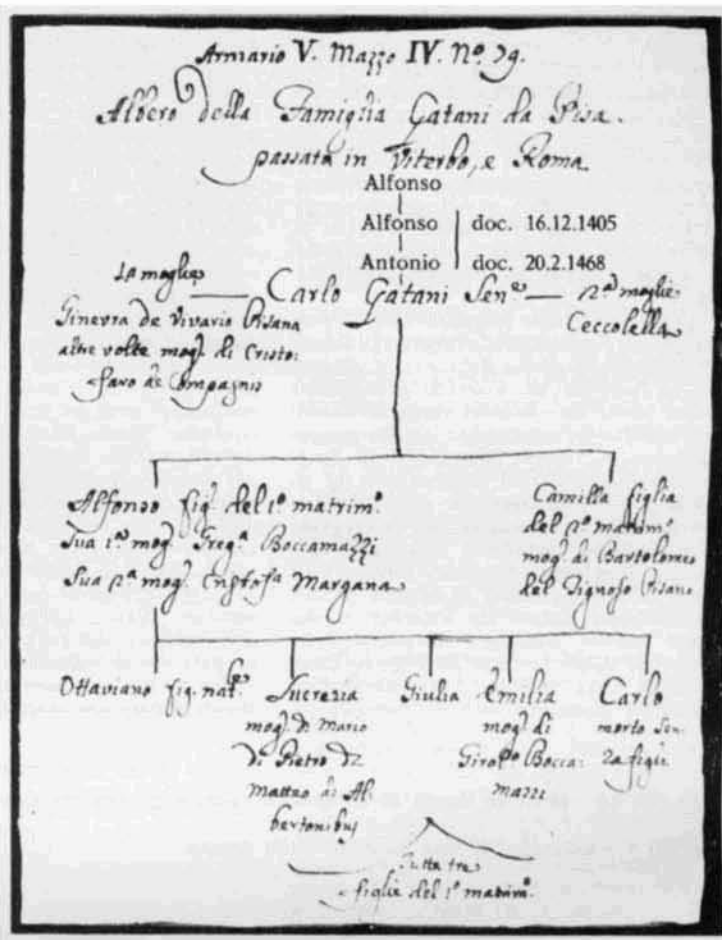 Armario V. Mazzo IV. Nº. 79.
Albero della Famiglia Gatani da Pisa.
passata in Viterbo, e Roma
Alfonso
Alfonso doc. 16.12.1405
Antonio doc. 20.2.1468
1a moglie
Carlo Gatani Sen.e
2.a moglie
Ceccolella
Ginevra de Vivario Pisana
altre volte mog. di Cristo:
faro de Compagnis
Alfonso fig. del 1º matrim.º
Sua 1.a mog. Greg.a Boccamazzi
Sua 2.a mog. Margana
Camilla figlia
del 2º matrim.º
mog. di Bartolomeo
del Tignoso Pisano
Ottaviano fig. nat.e
Lucrezia
mog. di Mario
di Pietro di
Matteo de Al
bertonibus
Giulia
Emilia
mog. di
Girol.mo Bocca:
mazzi
Carlo
morto Sen:
za figli
Tutte tre
figlie del 1º matrim.º